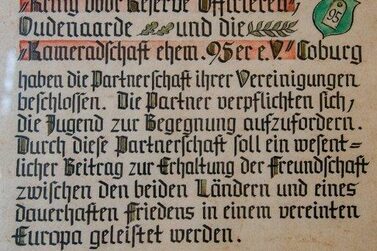 Kring voor Reserve Officieren,
Oudenaarde und die
„Kameradschaft ehem. 95er e.V." Coburg
95
haben die Partnerschaft ihrer Vereinigungen
beschlossen. Die Partner verpflichten sich,
die Jugend zur Begegnung aufzufordern.
Durch diese Partnerschaft soll ein wesent=
licher Beitrag zur Erhaltung der Freundschaft
zwischen den beiden Ländern und eines
dauerhaften Friedens in einem vereinten
Europa geleistet werden.